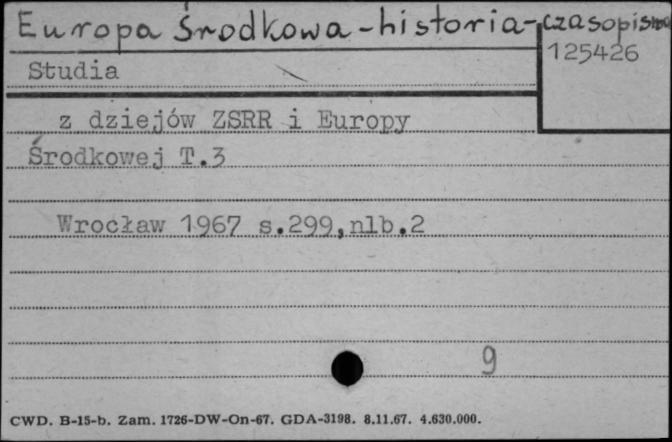 Europa Środkowa - historia - czasopisma
125426
Studia
z dziejów ZSRR i Europy
Środkowej T.3
Wrocław 1967 s.299,nlb.2
9
CWD. B-15-b. Zam. 1726-DW-On-67. GDA-3198. 8.11.67. 4.630.000.